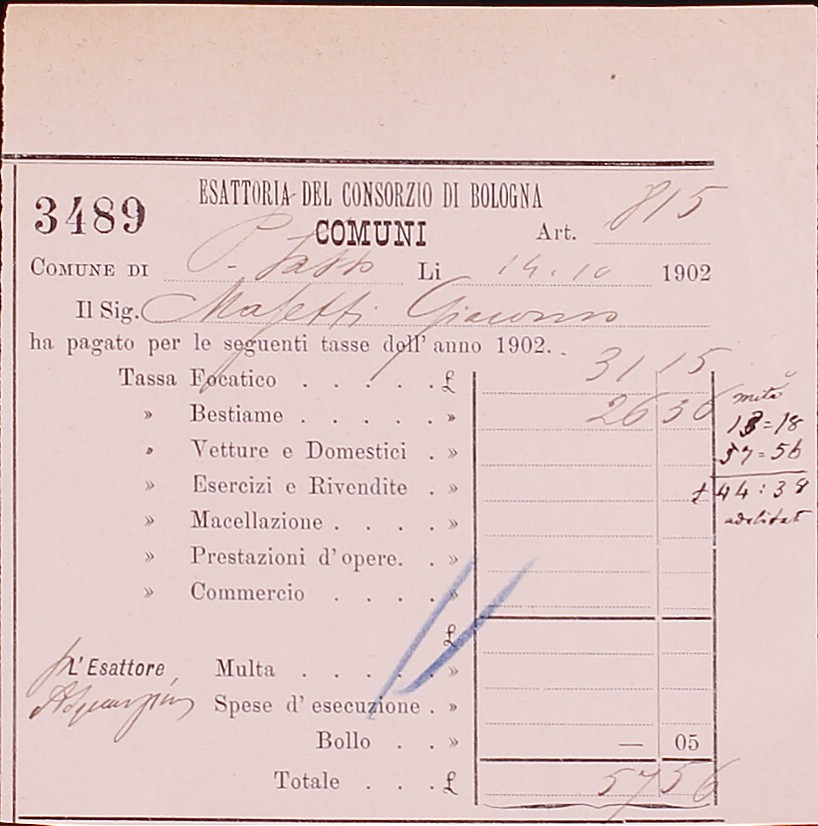 ESATTORIA DEL CONSORZIO DI BOLOGNA
3489
COMUNI
Art. 815
COMUNE DI P. Sasso Li 14.10 1902
Il Sig. Masetti Giacomo
ha pagato per le seguenti tasse dell' anno 1902.
Tassa Focatico . . . . . £ 31 15
» Bestiame . . . . . » 26 36
» Vetture e Domestici . »
» Esercizi e Rivendite . »
» Macellazione . . . . »
» Prestazioni d' opere. . »
» Commercio . . . . »
£
L' Esattore Multa . . . . . »
Spese d' esecuzione . »
Bollo . . » — 05
Totale . . . £ 57 56
metà
13=18
57=56
£ 44:38